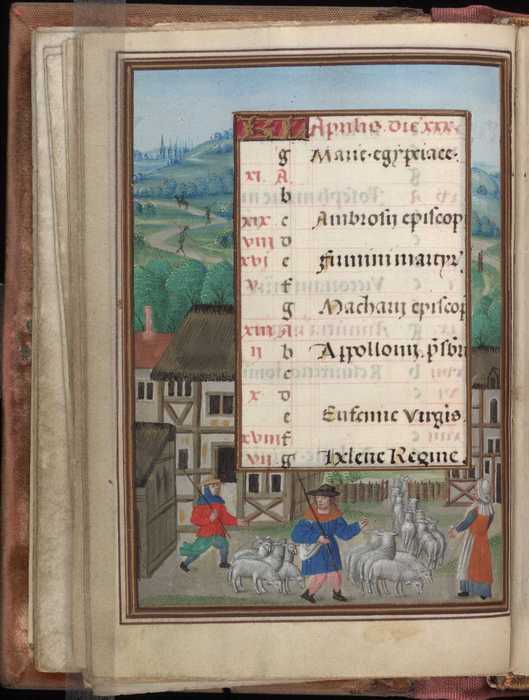 KL Aprilis. Die xxx.
g Marie egyptiace.
xi A
b
xix c Ambrosii episcop
viii d
xvi e firmini martyr
v f
g Macharii episcop
xiii A
ii b Appollonii. psbri
c
x d
e Eufemie virgis.
xviii f
vii g Helene Regine.